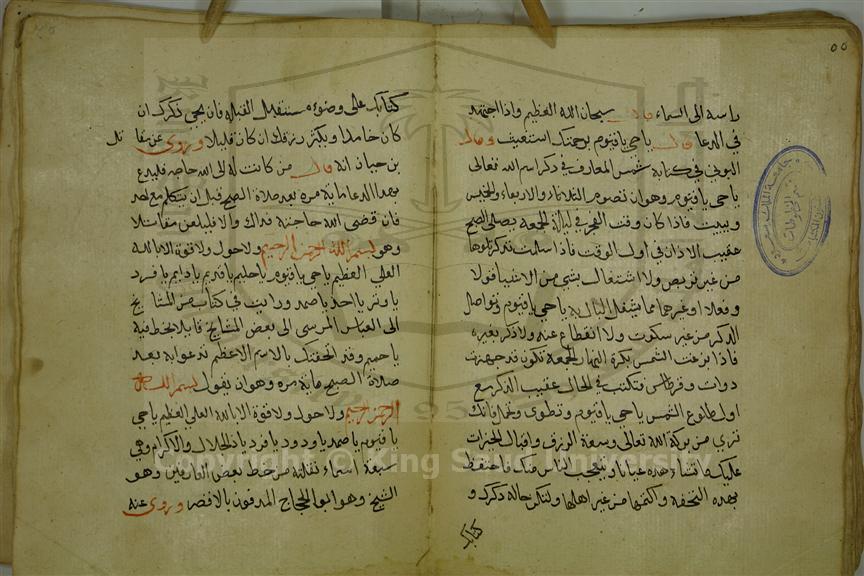 ٥٥
راسه الى السماء قال سبحان الله العظيم واذا اجتهد
في الدعا قال ياحي ياقيوم برحمتك استغيث وقال
البوني في كتابه شمس المعارف في ذكر اسم الله تعالى
ياحي ياقيوم وهو ان تصوم الثلاثاء والاربعاء والخميس
وببيت فاذا كان وقت الفجر في ليلة الجمعه يصلي الصبح
عقيب الاذان في اول الوقت فاذا سلمت فتذكرلوها
من غير تربص ولا اشتغال بشي من الاشيا قولا
وفعلا وغيرهما مما يشغل البال به ياحي ياقيوم وتواصل
الذكر من غير سكوت ولا انقطاع عنه ولا ذكر بغيره
فاذا بزغت الشمس بكرة النهار الجمعه تكون قد جهزت
دوات وقرطاس وتكتب في الحال عقيب الذكر مع
اول طلوع الشمس ياحي ياقيوم وتطوى وتحمل فانك
ترى من بركة الله تعالى وسعة الرزق واقبال الخيرات
عليك ما تشاهده عيانا ويتعجب الناس منك فاحتفظ
بهذه التحفة واكتمها من غير اهلها ولتكن حالة ذكرك و
كتابك
كتابك على وضوء مستقبل القبلة فان يحي ذكرك ان
كان خامدا ويكثر رزقك ان كان قليلا وروى عن مقاتل
بن حيان انه قال من كانت له الى الله حاجه فليدع
بهذا الدعا ماية مره بعد صلاة الصبح قبل ان يتكلم مع احد
فان قضى الله حاجته فذاك والا فليلعن مقاتلا
وهو بسم الله الرحمن الرحيم ولا حول ولا قوة الا بالله
العلي العظيم ياحي ياقيوم ياحليم ياقديم يادايم يافرد
ياوتر يااحد ياصمد ورايت في كتاب من المشايخ
الى العباس المرسى الى بعض المشايخ قابلا بخط فيه
ياحميم وقد اتحفتك بالاسم الاعظم تدعوا به بعد
صلاة الصبح ماية مره وهو ان يقول بسم الله
الرحمن الرحيم ولا حول ولا قوة الا بالله العلي العظيم ياحي
ياقيوم ياصمد ياودود يافرد ياذا الجلال والاكرام وهي
سبعة اسماء نقلته من خط بعض العارفين وهو
الشيخ وهو ابو الحجاج المدفون بالاقصر وروى عنه
Copyright © King Saud University
1957